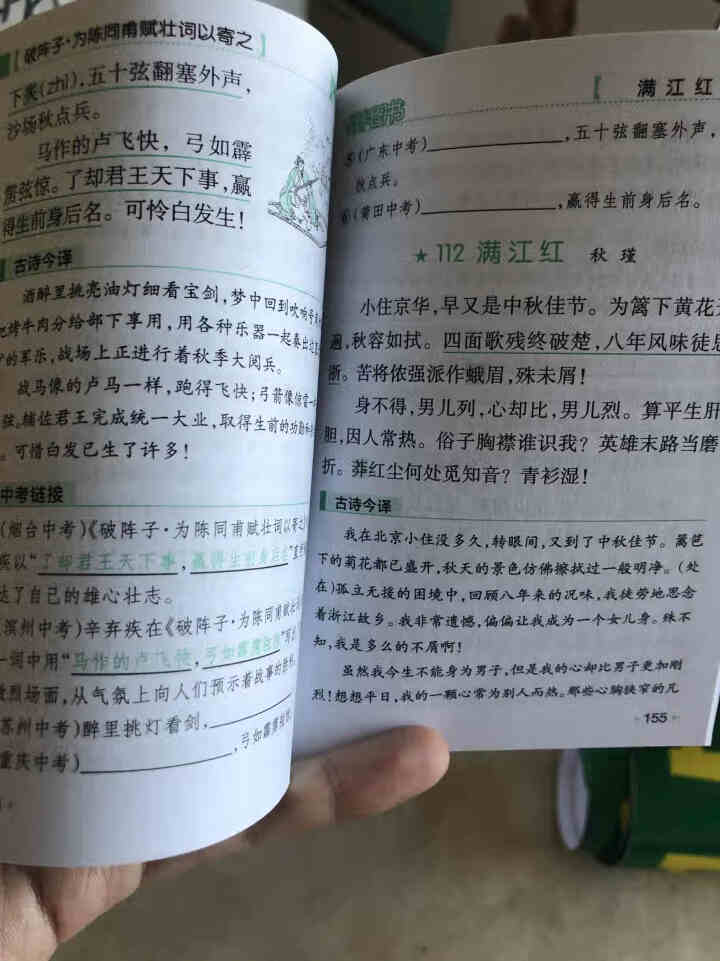 【破阵子·为陈同甫赋壮词以寄之】
下炙(zhì),五十弦翻塞外声,
沙场秋点兵。
马作的卢飞快,弓如霹
雳弦惊。了却君王天下事,赢
得生前身后名。可怜白发生!
古诗今译
酒醉里挑亮油灯细看宝剑,梦中回到吹响号
把烤牛肉分给部下享用,用各种乐器一起奏出
的军乐,战场上正进行着秋季大阅兵。
战马像的卢马一样,跑得飞快;弓箭像
弦。辅佐君王完成统一大业,取得生前的功勋
。可惜白发已生了许多!
中考链接
(烟台中考)《破阵子·为陈同甫赋壮词以寄之》
疾以“了却君王天下事,赢得生前身后名”
达了自己的雄心壮志。
滨州中考)辛弃疾在《破阵子·为陈同甫赋壮词
一词中用“马作的卢飞快,弓如霹雳弦惊”
激烈场面,从气氛上向人们预示着故事的
苏州中考)醉里挑灯看剑,
重庆中考),弓如霹雳弦惊
【 满江红
⑤(广东中考),五十弦翻塞外声,
秋点兵。
⑥(莆田中考),赢得生前身后名。
★112 满江红 秋瑾
小住京华,早又是中秋佳节。为篱下黄花开
遍,秋容如拭。四面歌残终破楚,八年风味徒思
浙。苦将侬强派作蛾眉,殊未屑!
身不得,男儿列,心却比,男儿烈。算平生肝
胆,因人常热。俗子胸襟谁识我?英雄末路当磨
折。莽红尘何处觅知音?青衫湿!
古诗今译
我在北京小住没多久,转眼间,又到了中秋佳节。篱笆
下的菊花都已盛开,秋天的景色仿佛擦拭过一般明净。(处
在)孤立无援的困境中,回顾八年来的况味,我徒劳地思念
着浙江故乡。我非常遗憾,偏偏让我成为一个女儿身。殊不
知,我是多么的不屑啊!
虽然我今生不能身为男子,但是我的心却比男子更加刚
烈!想想平日,我的一颗心常为别人而热。那些心胸狭窄的凡
155